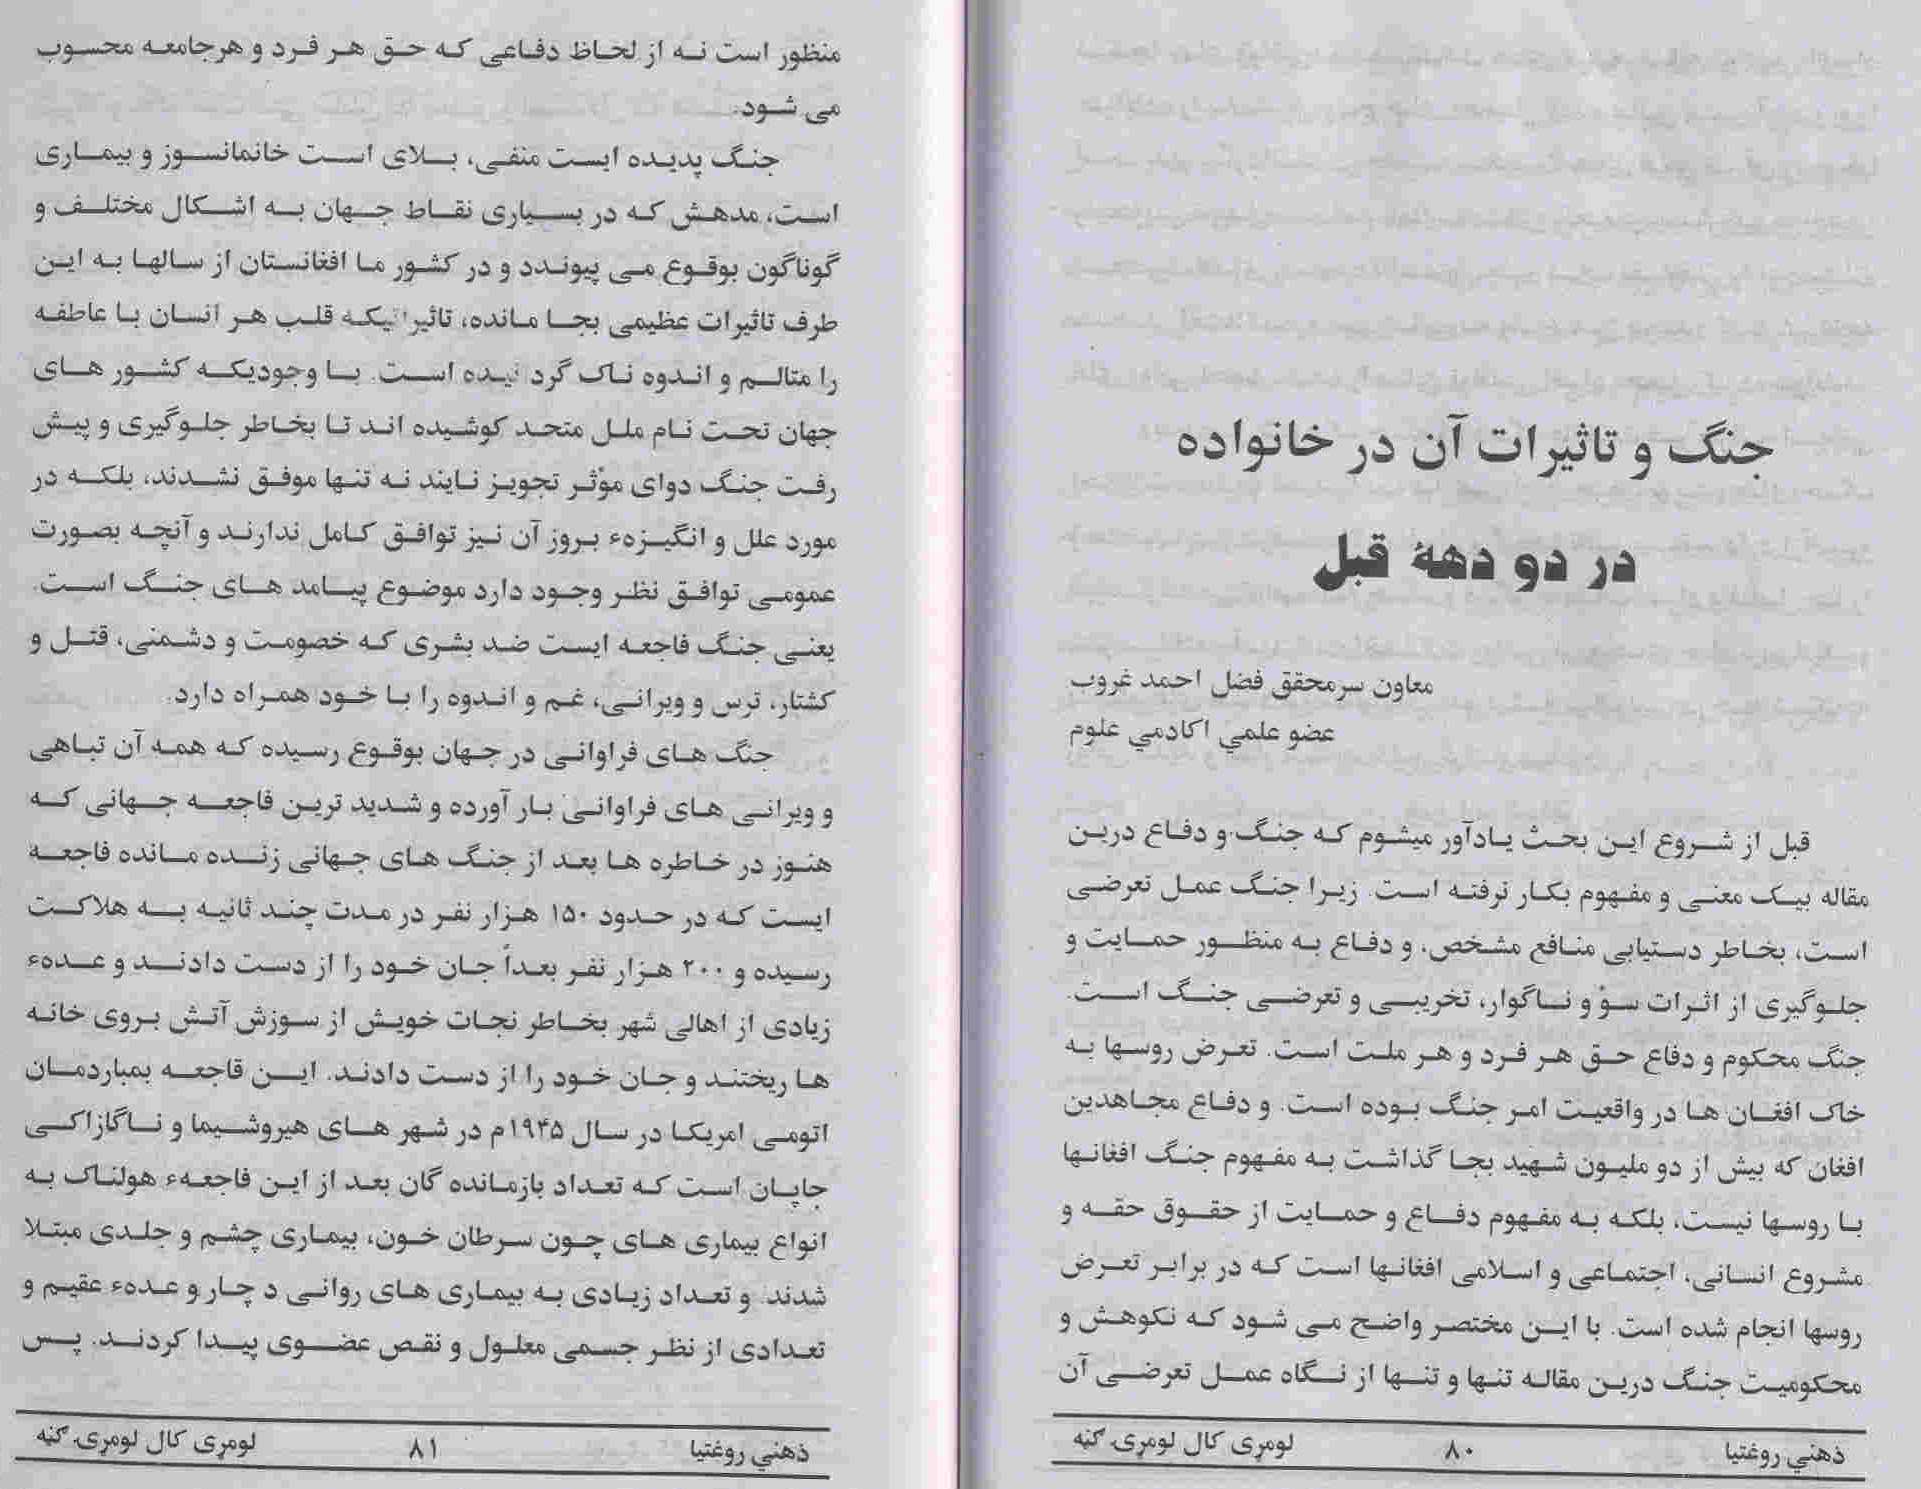 جنگ و تاثیرات آن در خانواده
در دو دههٔ قبل
معاون سرمحقق فضل احمد غروب
عضو علمي اکادمي علوم
قبل از شروع این بحث یادآور میشوم که جنگ و دفاع درین
مقاله بیک معنی و مفهوم بکار نرفته است. زیرا جنگ عمل تعرضی
است، بخاطر دستیابی منافع مشخص، و دفاع به منظور حمایت و
جلوگیری از اثرات سوٌ و ناگوار، تخریبی و تعرضی جنگ است.
جنگ محکوم و دفاع حق هر فرد و هر ملت است. تعرض روسها به
خاک افغان ها در واقعیت امر جنگ بوده است. و دفاع مجاهدین
افغان که بیش از دو ملیون شهید بجا گذاشت به مفهوم جنگ افغانها
با روسها نیست، بلکه به مفهوم دفاع و حمایت از حقوق حقه و
مشروع انسانی، اجتماعی و اسلامی افغانها است که در برابر تعرض
روسها انجام شده است. با این مختصر واضح می شود که نکوهش و
محکومیت جنگ درین مقاله تنها و تنها از نگاه عمل تعرضی آن
ذهني روغتیا ۸۰ لومړی کال لومړۍ ګڼه
منظور است نه از لحاظ دفاعی که حق هر فرد و هرجامعه محسوب
می شود.
جنگ پدیده ایست منفی، بلای است خانمانسوز و بیماری
است، مدهش که در بسیاری نقاط جهان به اشکال مختلف و
گوناگون بوقوع می پیوندد و در کشور ما افغانستان از سالها به این
طرف تاثیرات عظیمی بجا مانده، تاثیراتیکه قلب هر انسان با عاطفه
را متالم و اندوه ناک گردانیده است. با وجودیکه کشور های
جهان تحت نام ملل متحد کوشیده اند تا بخاطر جلوگیری و پیش
رفت جنگ دوای موٌثر تجویز نایند نه تنها موفق نشدند، بلکه در
مورد علل و انگیزهء بروز آن نیز توافق کامل ندارند و آنچه بصورت
عمومی توافق نظر وجود دارد موضوع پیامد های جنگ است.
یعنی جنگ فاجعه ایست ضد بشری که خصومت و دشمنی، قتل و
کشتار، ترس و ویرانی، غم و اندوه را با خود همراه دارد.
جنگ های فراوانی در جهان بوقوع رسیده که همه آن تباهی
و ویرانی های فراوانی بار آورده و شدید ترین فاجعه جهانی که
هنوز در خاطره ها بعد از جنگ های جهانی زنده مانده فاجعه
ایست که در حدود ۱۵۰ هزار نفر در مدت چند ثانیه به هلاکت
رسیده و ۲۰۰ هزار نفر بعداً جان خود را از دست دادند و عدهء
زیادی از اهالی شهر بخاطر نجات خویش از سوزش آتش بروی خانه
ها ریختند و جان خود را از دست دادند. این فاجعه بمباردمان
اتومی امریکا در سال ۱۹۴۵م در شهر های هیروشیما و ناگازاکی
جاپان است که تعداد بازمانده گان بعد از این فاجعهء هولناک به
انواع بیماری های چون سرطان خون، بیماری چشم و جلدی مبتلا
شدند. و تعداد زیادی به بیماری های روانی د چار و عدهء عقیم و
تعدادی از نظر جسمی معلول و نقص عضوی پیدا کردند. پس
ذهني روغتیا ۸۱ لومړی کال لومړۍ ګڼه